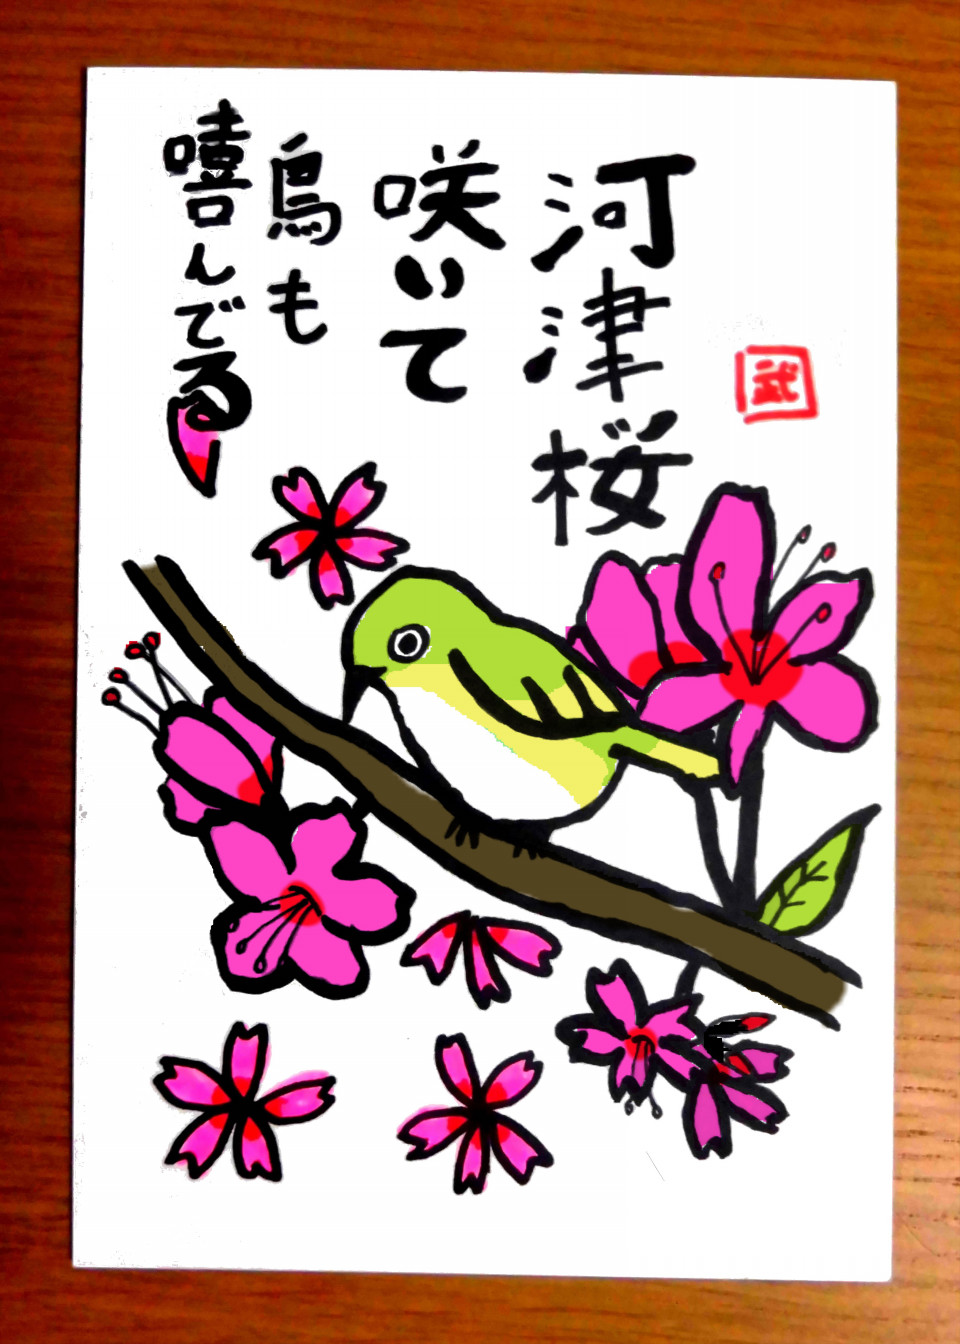 河津桜
咲いて
鳥も
嘻んでる
武